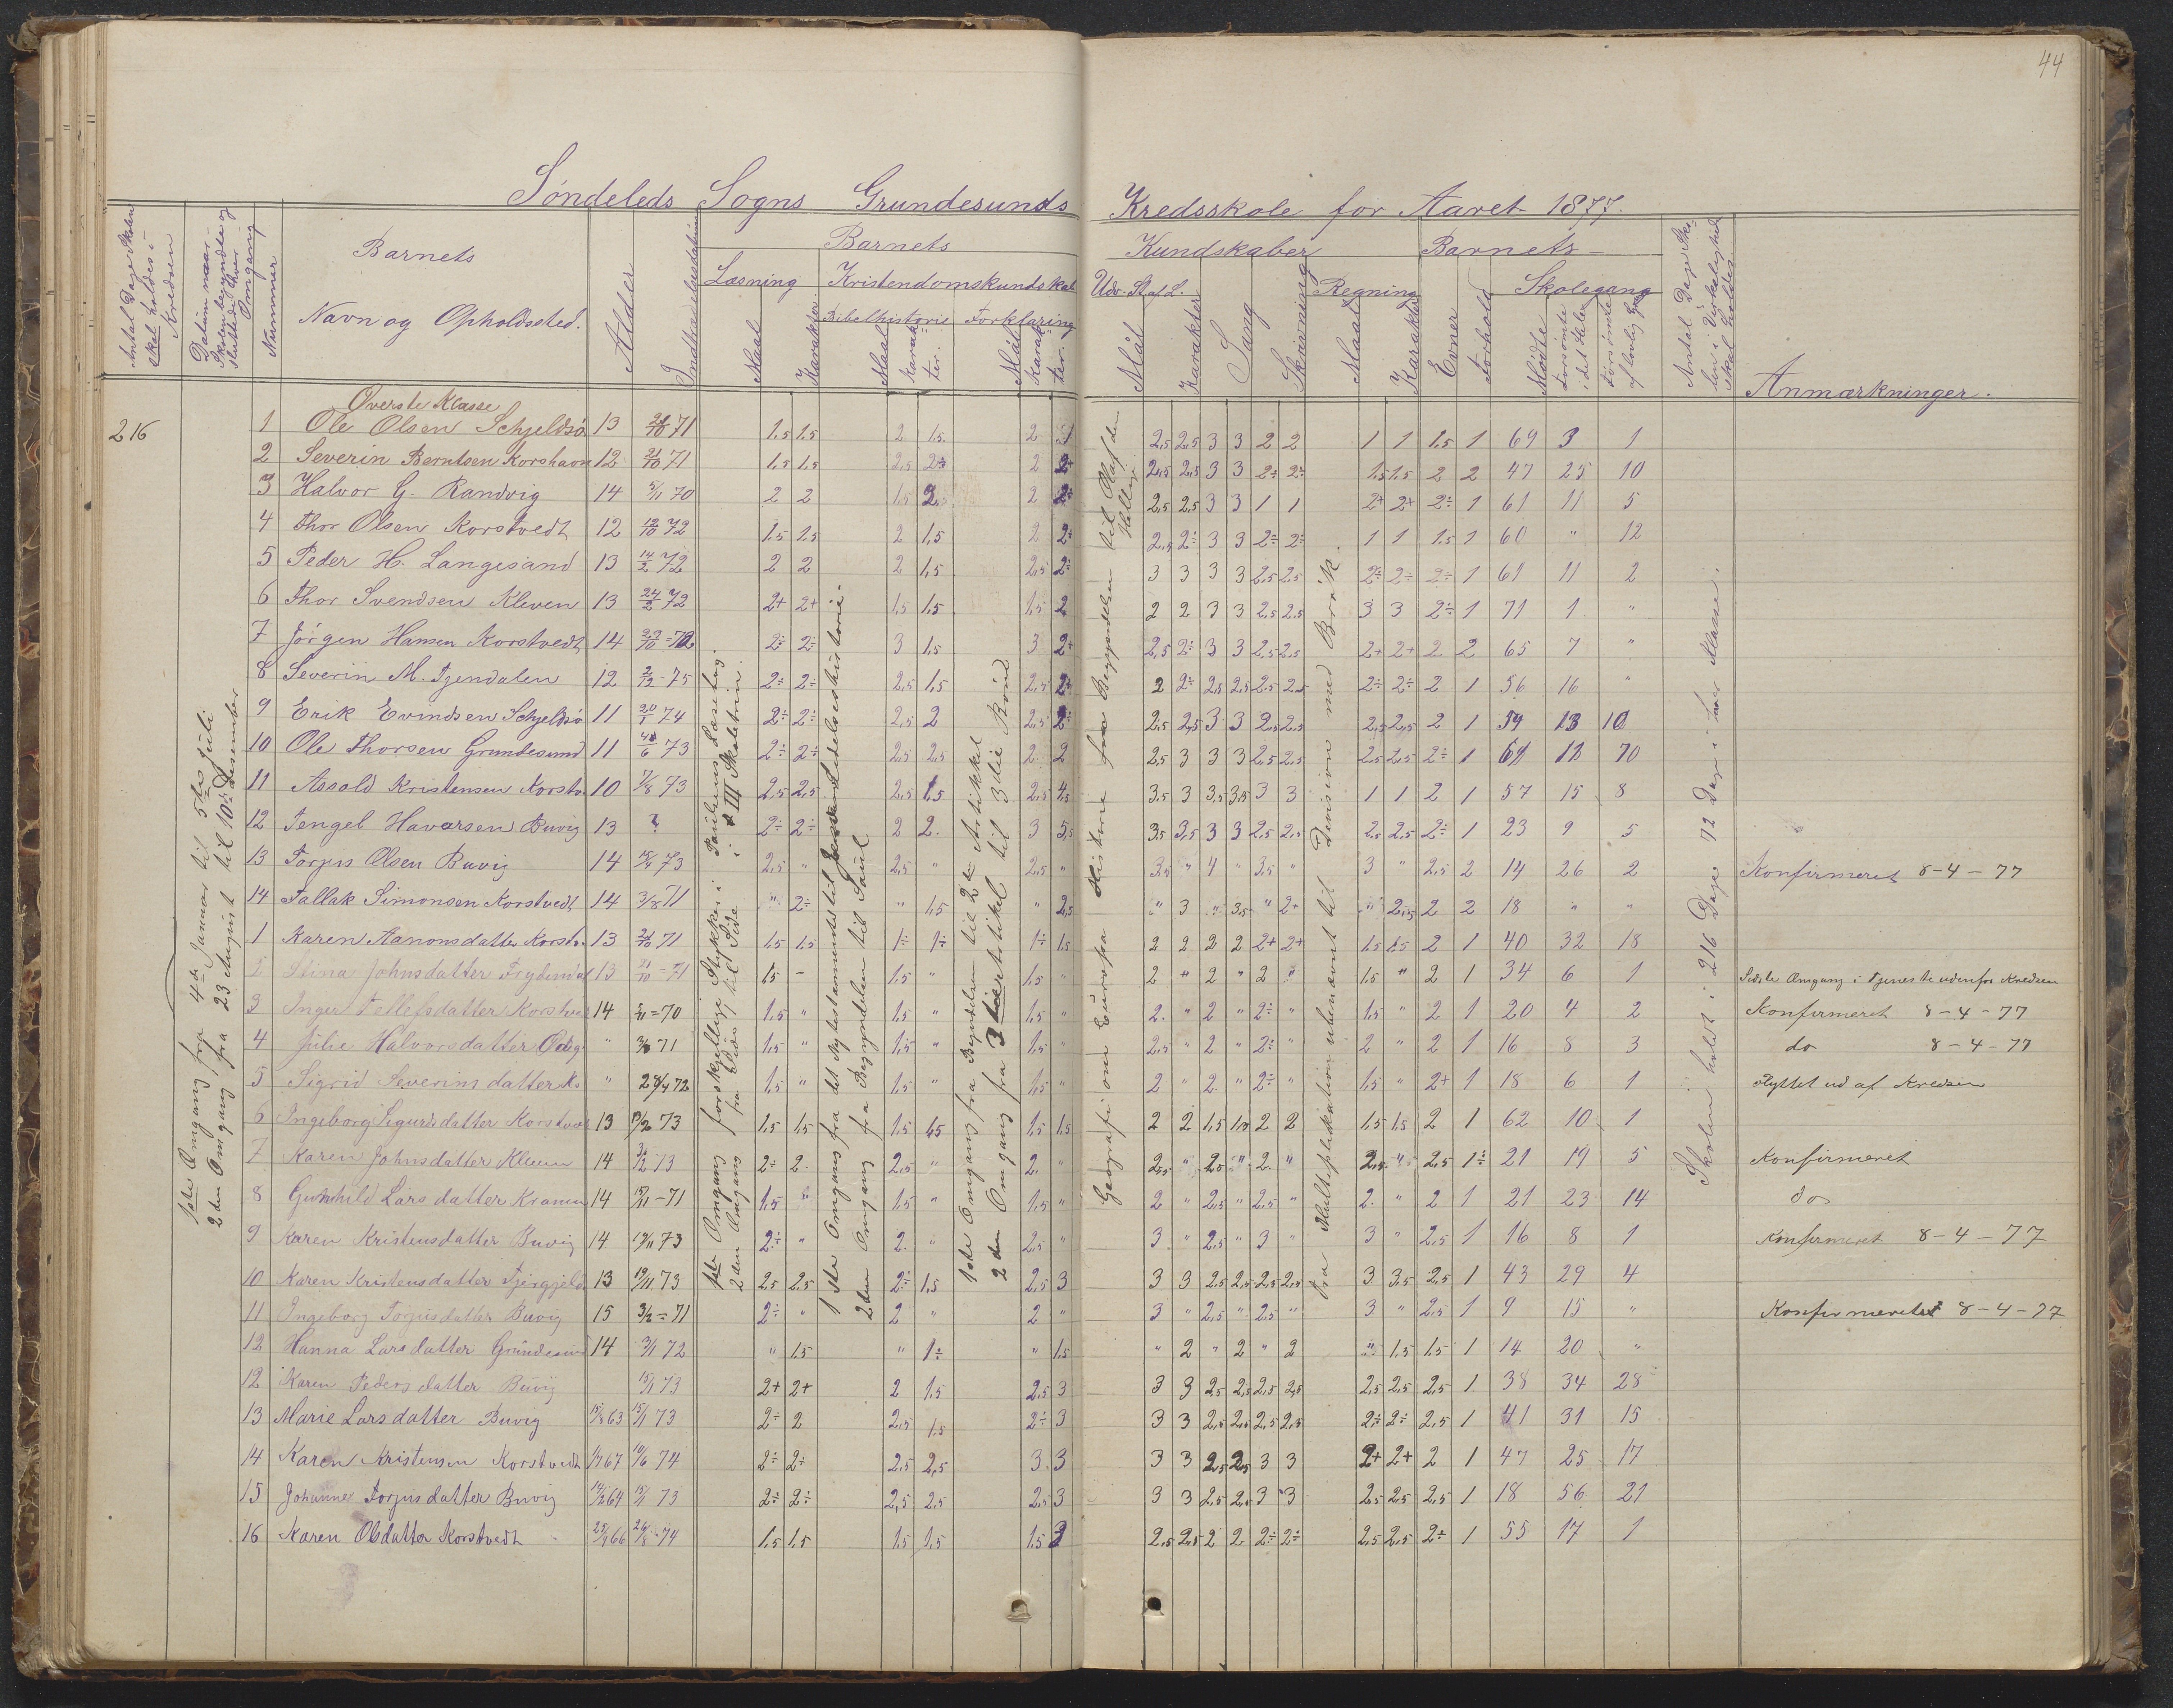 44
Søndeleds Sogns Grundesunds Kredsskole for Aaret 1877.
Antal Dage Skolen skal holdes i Kredsen
Datum naar Skolen begyndte og sluttede hver Omgang
Nummer
Barnets Navn og Opholdssted.
Alder
Indtrædelsesdatum
Barnets Kundskaber
Læsning
Maal
Karakter
Kristendomskundskab
Bibelhistorie
Maal
Karakter.
Forklaring
Mål
Karakter.
Udv. St. af L.
Mål
Karakter
Sang
Skrivning
Regning
Maal
Karakter
Barnets
Evner
Forhold
Skolegang
Mødte
Forsømte i det Hele
Forsømte af lovlig Gr.
Antal Dage Skolen i Virkelighed skal holdes
Anmærkninger.
216
1ste Omgang fra 4de Januar til 5te Juli
2den Omgang fra 23 August til 10de Desember
1ste Omgang forskjellige Stykker i Pauluns Læsebog.
2den Omgang fra Side til Side i III Skoletrin.
1ste Omgang fra det Nytestamente til Jesu Lidelseshistorie.
2den Omgang fra Begyndelsen til Saul
1ste Omgang fra Begyndelsen til 2den Artikkel
2den Omgang fra 3die Artikel til 3die Bønn
Geografi om Europa Historie fra Begyndelsen til Olaf den Hellige
Fra Multiplikation ubenævnt til Division med Brøk.
Skolen holdt i 216 Dage 72 Dage i hver Klasse.
Øverste Klasse
1 Ole Olsen Schjeldsø 13 21/10 71 1,5 1,5 2 1,5 2 2,5 2,5 3 3 2 2 1 1 1,5 1 69 3 1
2 Severin Berntsen Korshavn 12 21/10 71 1,5 1,5 2,5 2÷ 2 2+ 2,5 2,5 3 3 2÷ 2÷ 1,5 1,5 2 2 47 25 10
3 Halvor G. Randvig 14 5/11 70 2 2 1,5 2,5 2 2÷ 2,5 2,5 3 3 1 1 2+ 2+ 2÷ 1 61 11 5
4 Thor Olsen Korstvedt 12 12/10 72 1,5 1,5 2 1,5 2 2+ 2,5 2÷ 3 3 2÷ 2÷ 1 1 1,5 1 60 " 12
5 Peder H. Langesand 13 14/2 72 2 2 2 1,5 2,5 2÷ 3 3 3 3 2,5 2,5 2÷ 2÷ 2÷ 1 61 11 2
6 Thor Svendsen Kleven 13 24/2 72 2+ 2+ 1,5 1,5 1,5 2 2 2 3 3 2,5 2,5 3 3 2÷ 1 71 1 "
7 Jörgen Hansen Korstvedt 14 22/10 - 72 2÷ 2÷ 3 1,5 3 2+ 2,5 2÷ 3 3 2,5 2,5 2+ 2+ 2 2 65 7 "
8 Severin M. Tjendalen 12 2/12 - 75 2÷ 2÷ 2,5 1,5 2,5 2+ 2 2÷ 2,5 2,5 2,5 2,5 2÷ 2÷ 2 1 56 16 "
9 Erik Evindsen Schjeldsø 11 20/1 74 2÷ 2÷ 2,5 2 2,5 2÷ 2,5 2,5 3 3 2,5 2,5 2,5 2,5 2 1 59 13 10
10 Ole Thorsen Grundesund 11 6 73 2÷ 2÷ 2,5 2,5 2 2 2,5 3 3 3 2,5 2,5 2,5 2,5 2÷ 1 61 11 10
11 Assold Kristensen Korstv. 10 7/8 73 2,5 2,5 2,5 1,5 2,5 4,5 3,5 3 3,5 3,5 3 3 1 1 2 1 57 15 8
12 Tengel Havorsen Buvig 13 ? 2÷ 2÷ 2 2. 3 5,5 3,5 3,5 3 3 2,5 2,5 2,5 2,5 2÷ 1 23 9 5
13 Torjus Olsen Buvig 14 15/4 73 2,5 " 2,5 " 2,5 " 3,5 " 4 " 3,5 " 3 " 2,5 2 14 26 2 Konfirmeret 8-4-77
14 Tallak Simonsen Korstvedt 14 3/8 71 " 2÷ " 1,5 " 2,5 " 3 " 3,5 " 2+ " 2,5 2 2 18 " "
1 Karen Aanonsdatter Korstv. 13 21/10 71 1,5 1,5 1÷ 1÷ 1÷ 1,5 2 2 2 2 2+ 2+ 1,5 1,5 2 1 40 32 18
2 Stina Johnsdatter 13 21/10 - 71 1,5 - 1,5 " 1,5 " 2 " 2 " 2 " 1,5 " 2 1 34 6 1 Sidste Omgang i Tjeneste udenfor Kredsen
3 Inger Tellefsdatter Korstved 14 5/11 = 70 1,5 " 1,5 " 1,5 " 2. " 2 " 2÷ " 1,5 " 2 1 20 4 2 Konfirmeret 8-4-77
4 Julie Halvorsdatter " 3/8 71 1,5 " 1,5 " 1,5 " 2,5 " 2 " 2÷ " 2 " 2 1 16 8 3 do 8-4-77
5 Sigrid Severins datter Ko " 28/4 72 1,5 " 1,5 " 1,5 " 2 " 2 " 2÷ " 1,5 " 2+ 1 18 6 1 Flyttet ud af Kredsen
6 Ingeborg Sigurdsdatter Korstved 13 /2 73 1,5 1,5 1,5 1,5 1,5 1,5 2 2 1,5 1,5 2 2 1,5 1,5 2 1 62 10 1
7 Karen Johnsdatter Kleven 14 3/12 73 2÷ 2. 2,5 " 2. " 2,5 " 2,5 " 2. " 2,5 " 2,5 1÷ 21 19 5 Konfirmeret
8 Gunhild Lars datter 14 15/11 - 71 1,5 " 1,5 " 1,5 " 2 " 2,5 " 2,5 " 2. " 2 1 21 23 14 do
9 Karen Kristensdatter Buvig 14 19/11 73 2÷ " 2. " 2,5 " 3 " 2,5 " 3 " 3 " 2,5 1 16 8 1 Konfirmeret 8-4-77
10 Karen Kristensdatter 13 19/11 73 2,5 2,5 2÷ 1,5 2,5 3 3 3 2,5 2,5 2,5 2,5 3 3,5 2,5 1 43 29 4
11 Ingeborg Torjusdatter Buvig 15 3/2 = 71 2÷ " 2 " 2 " 3 " 2,5 " 2,5 " 3 " 2,5 1 9 15 " Konfirmeret 8-4-77
12 Hanna Larsdatter Grundesund 14 3/1 72 " 1,5 " 1÷ " 1,5 " 2 " 2 " 2 " 1,5 1,5 1 14 20 "
12 Karen Pedersdatter Buvig 15/1 73 2+ 2+ 2 1,5 2,5 3 3 3 2,5 2,5 2,5 2,5 2,5 2,5 2,5 1 38 34 28
13 Marie Larsdatter Buvig 15/8 63 15/1 73 2÷ 2 2,5 1,5 2÷ 3 3 3 2,5 2,5 2,5 2,5 2÷ 2÷ 2,5 1 41 31 15
14 Karen Kristensen Korstvedt 1/7 67 10/6 74 2÷ 2÷ 2,5 2,5 3. 3 3 3 2,5 2,5 3 3 2+ 2+ 2 1 47 25 17
15 Johanne Torjusdatter Buvig 14/2 64 15/1 73 2÷ 2÷ 2,5 2,5 2,5 3 3 3 2,5 2,5 3 3 2,5 2,5 2,5 1 18 56 21
16 Karen Olsdatter Korstvedt 25/9 66 26/8 - 74 1,5 1,5 1,5 1,5 1,5 3 2,5 2,5 2 2 2÷ 2÷ 2,5 2,5 2÷ 1 55 17 1